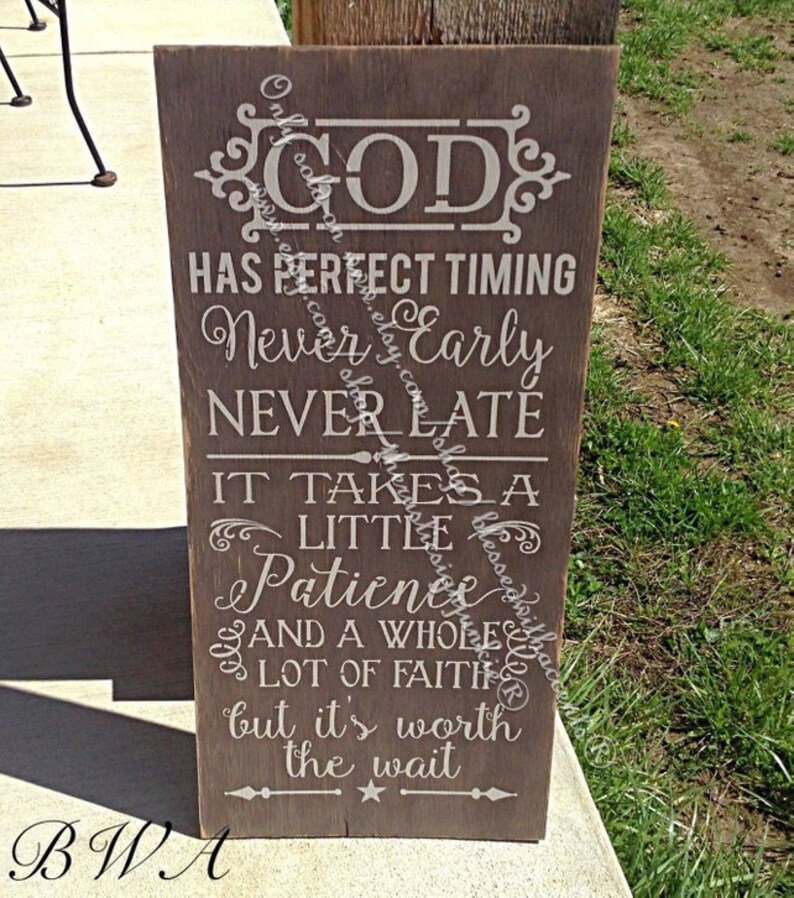 GOD
HAS PERFECT TIMING
Never Early
NEVER LATE
IT TAKES A
LITTLE
Patience
AND A WHOLE
LOT OF FAITH
but it's worth
the wait
Only sold on www.etsy.com shop blessedwithaccents®
www.etsy.com shop
BWA